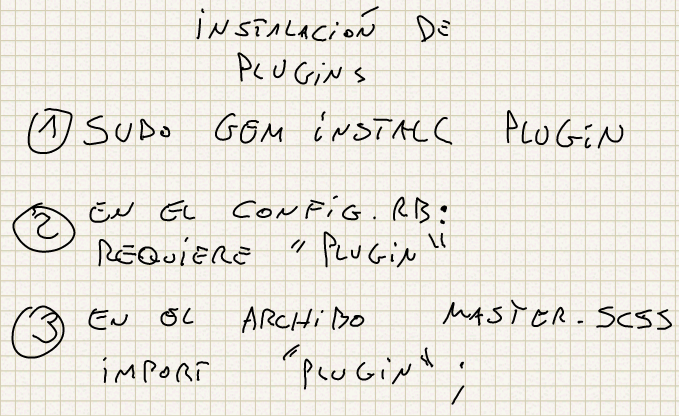 INSTALACIÓN DE
PLUGINS
1 SUDO GEM INSTALL PLUGIN
2 EN EL CONFIG.RB:
REQUIERE "PLUGIN"
3 EN EL ARCHIBO MASTER.SCSS
IMPORT "PLUGIN";